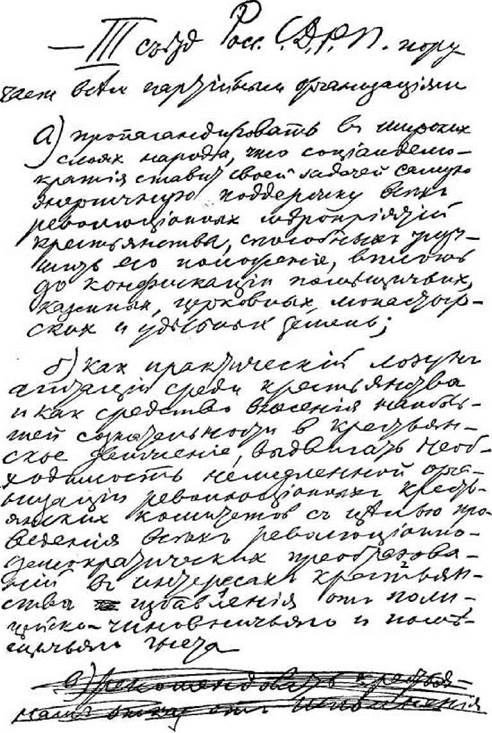 — III съезд Росс. С.Д.Р.П. пору
чает всем партийным организациям
а) пропагандировать в широких
слоях народа, что социалдемо-
кратия ставит своей задачей самую
энергичную поддержку всех
революционных мероприятий
крестьянства, способных улуч-
шить его положение, вплоть
до конфискации помещичьих,
казенных, церковных, монастыр-
ских и удельных земель;
б) как практический лозунг
агитации среди крестьянства
и как средство внесения наиболь-
шей сознательности в крестьян-
ское движение, выдвигать необ-
ходимость немедленной орга-
низации революционных кресть-
янских комитетов с целью про
ведения всех революционно-
демократических преобразова-
ний в интересах крестьян-
ства и избавления от поли-
цейско-чиновничьего и поме-
щичьего гнета
в) рекомендовать крестья-
нам отказ от исполнения